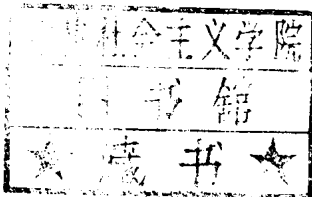 社会主义学院
书馆
★ 藏书 ★